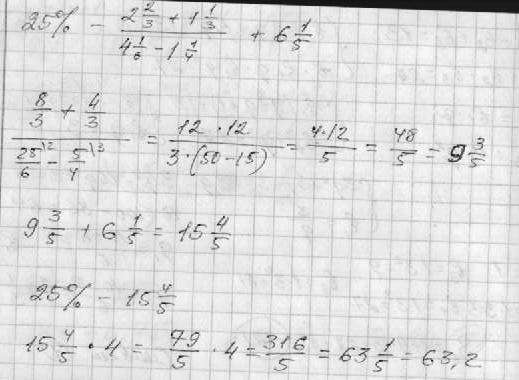 25% - (2 2/3 + 1 1/3)/(4 1/6 - 1 1/4) + 6 1/5
(8/3 + 4/3)/(25/6 \2 - 5/4 \3) = (12 · 12)/(3 · (50 - 15)) = (4 · 12)/5 = 48/5 = 9 3/5
9 3/5 + 6 1/5 = 15 4/5
25% - 15 4/5
15 4/5 · 4 = 79/5 · 4 = 316/5 = 63 1/5 = 63,2